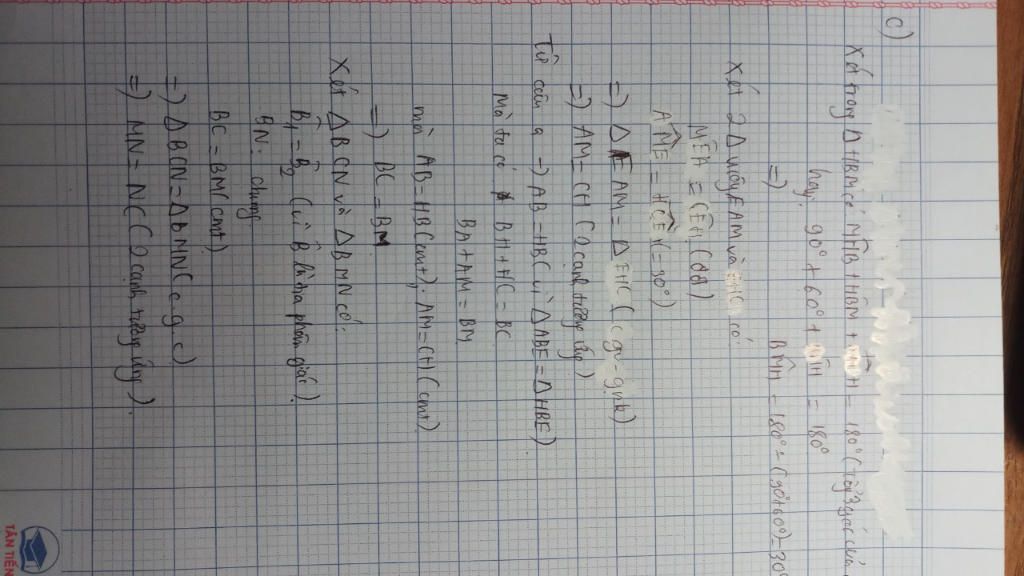 c)
Xét trong ΔHBM có MĤB + HB̂M + BM̂H = 180° (tổng 3 góc
hay: 90° + 60° + BM̂H = 180°
=) BM̂H = 180° - (90°+60°) = 30°
Xét 2Δ vuông EAM và EHC có:
MÊA = CÊH (đđ)
AM̂E = HĈE (=30°)
=) ΔEAM = ΔEHC (cgv - gnk)
=) AM = CH (2 cạnh tương ứng)
Từ câu a =) AB = HB (vì ΔABE = ΔHBE)
Mà ta có BH + HC = BC
BA + AM = BM
mà AB = HB (cmt), AM = CH (cmt)
=) BC = BM
Xét ΔBCN và ΔBMN có:
B̂1 = B̂2 (vì B là tia phân giác)
BN: chung
BC = BM (cmt)
=) ΔBCN = ΔBMN (c-g-c)
=) MN = NC (2 cạnh tương ứng).
TÂN TIẾN